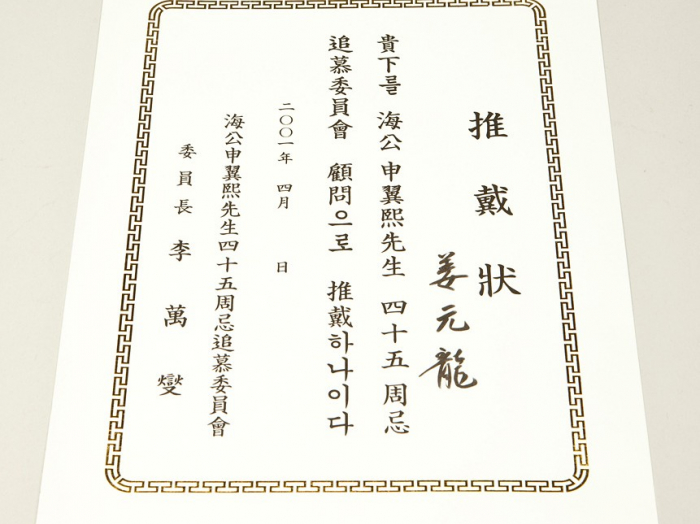 推戴狀
姜元龍
貴下를 海公申翼熙先生 四十五周忌
追慕委員會 顧問으로 推戴하나이다
二〇〇一年 四月 日
海公申翼熙先生四十五周忌追慕委員會
委員長 李萬燮